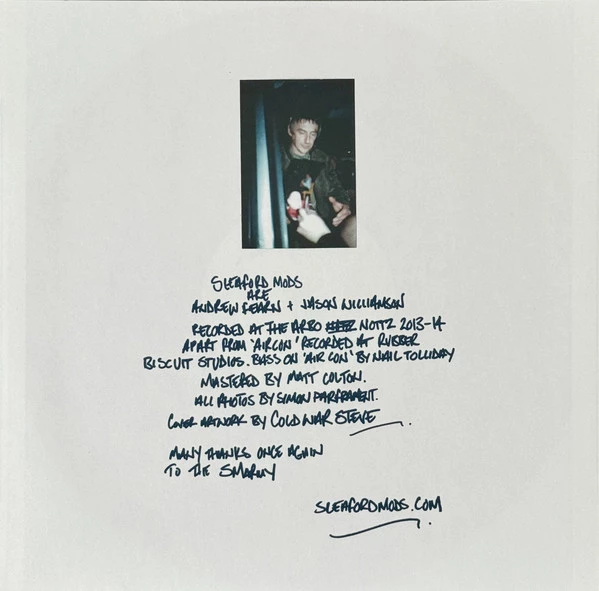 SLEAFORD MODS
ARE
ANDREW FEARN + JASON WILLIAMSON
RECORDED AT THE ARBO NOTTZ 2013-14
APART FROM 'AIRCON' RECORDED AT RUBBER
BISCUIT STUDIOS. BASS ON 'AIR CON' BY NAIL TOLLIDAY
MASTERED BY MATT COLTON.
ALL PHOTOS BY SIMON PARFRAMENT.
COVER ARTWORK BY COLD WAR STEVE.
MANY THANKS ONCE AGAIN
TO THE SMARMY
SLEAFORDMODS.COM